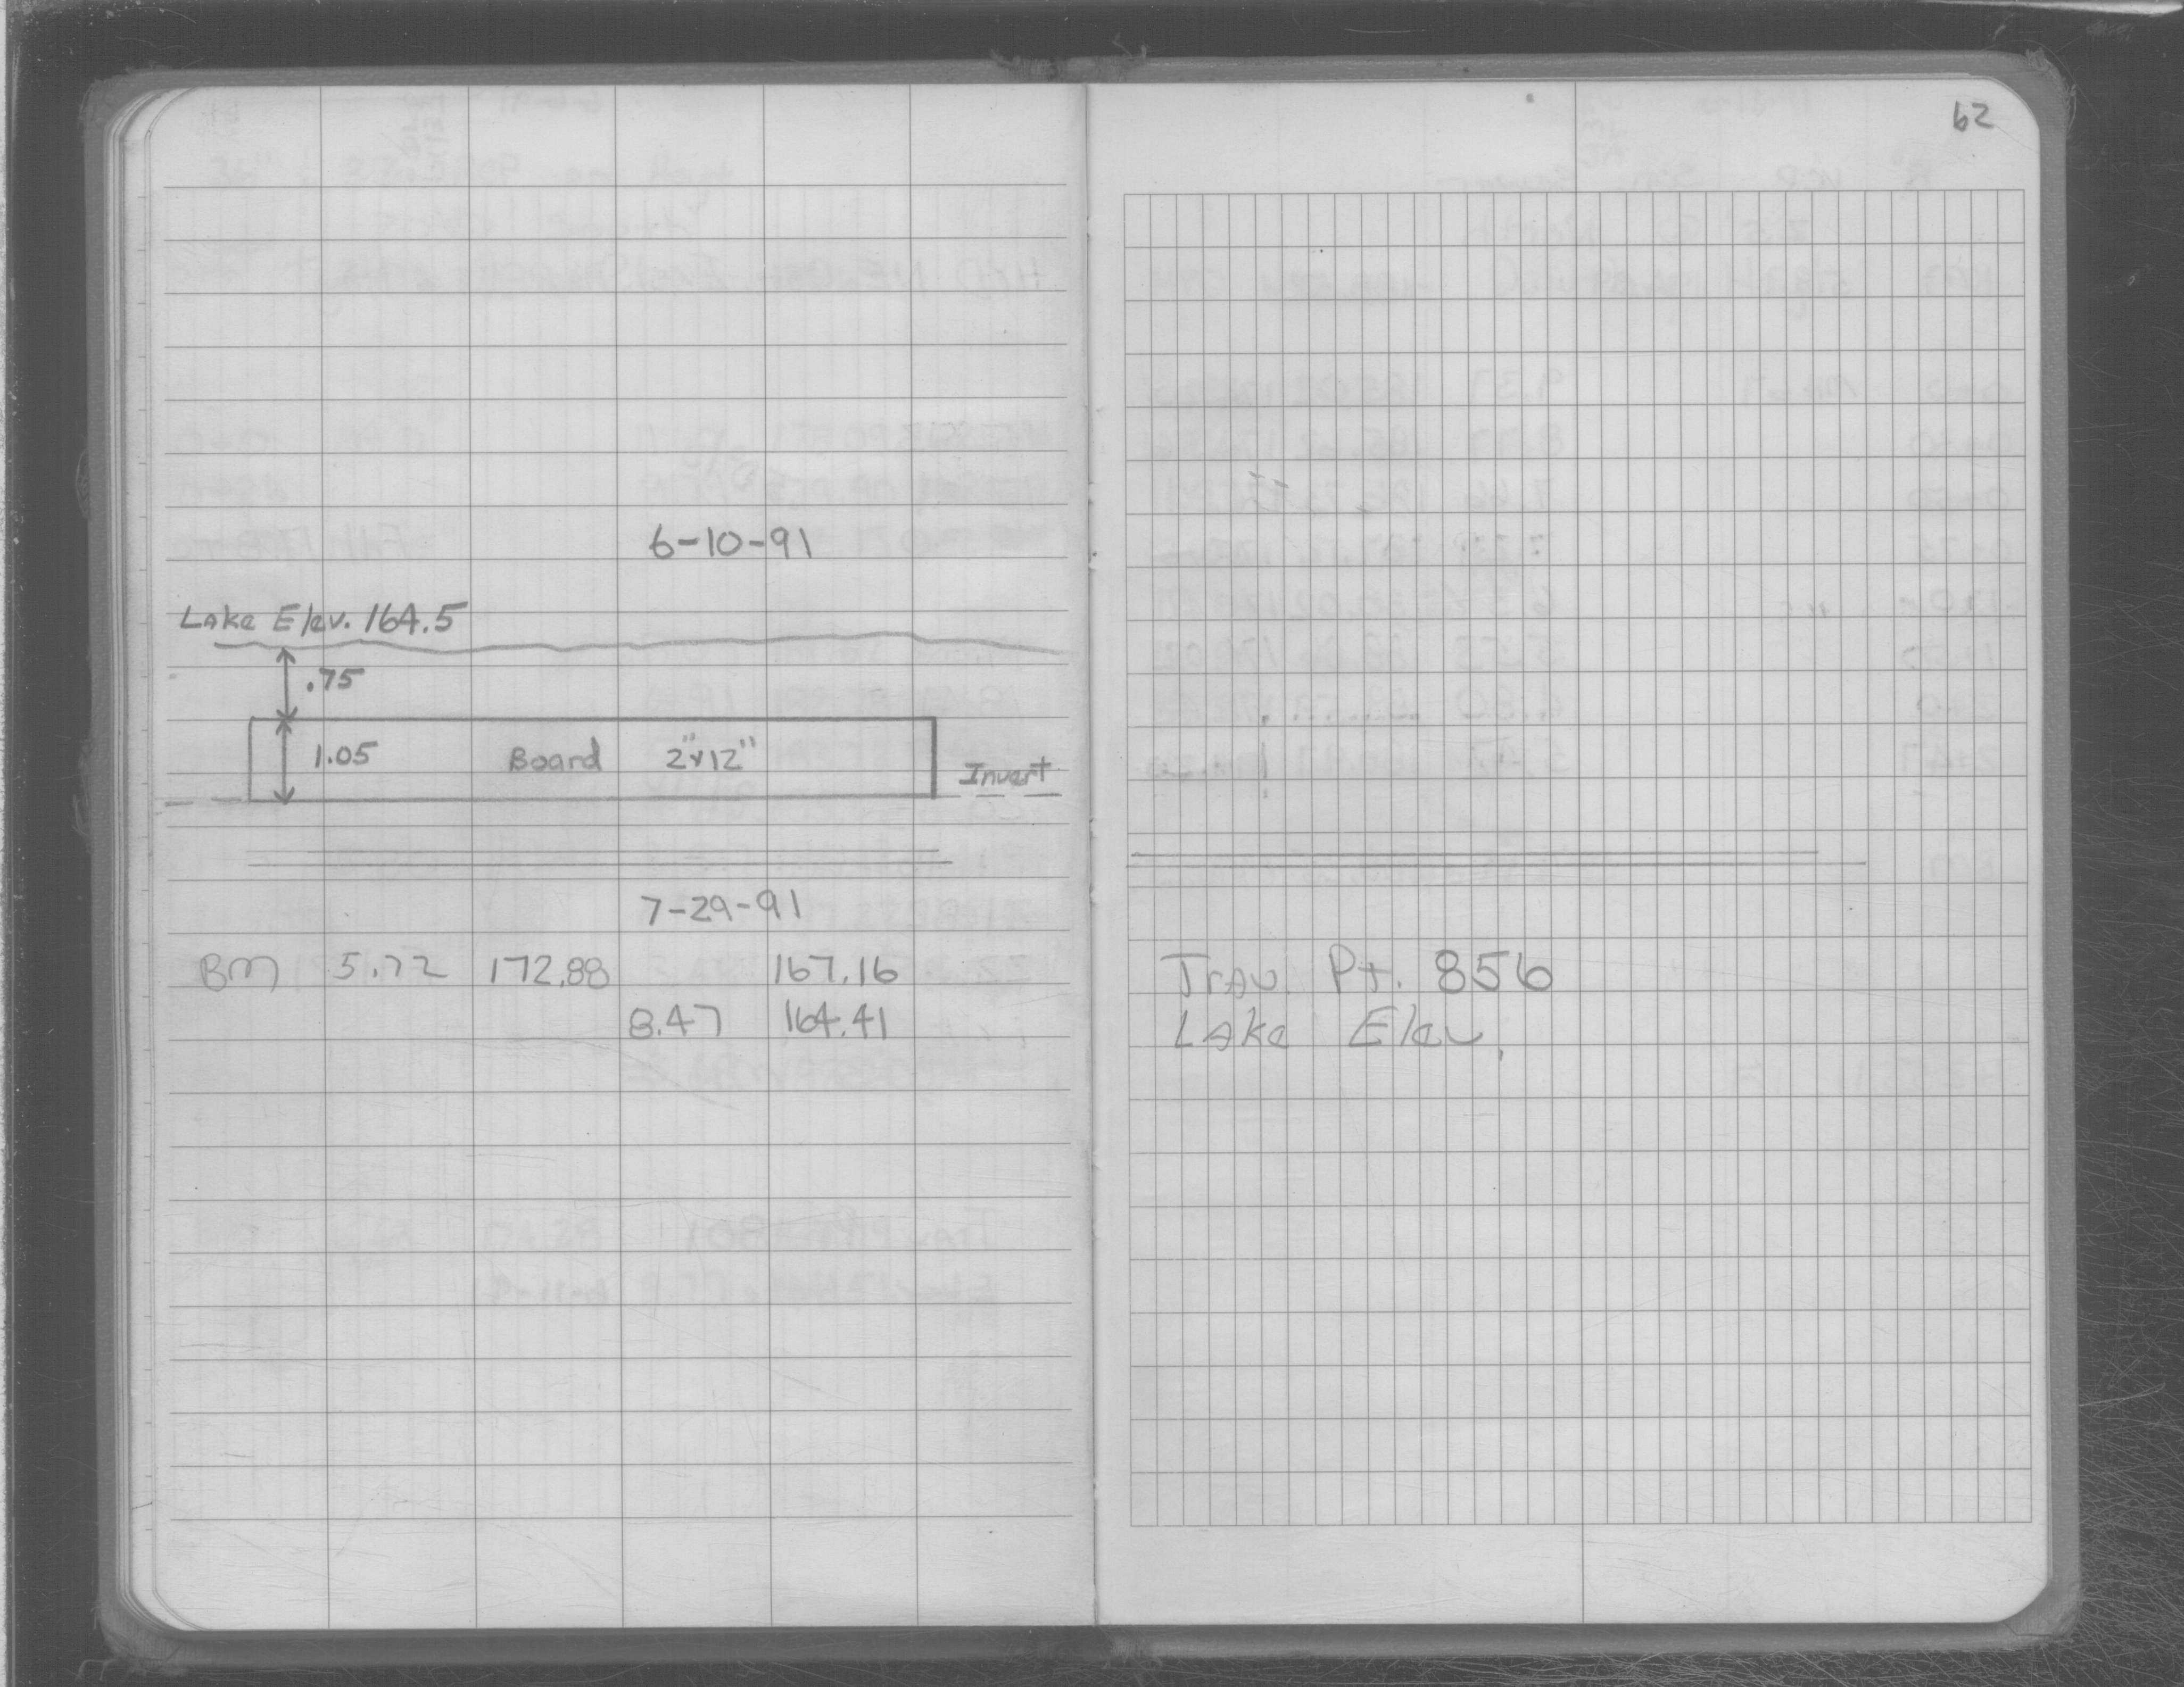 62
6-10-91
Lake Elev. 164.5
.75
1.05 Board 2"x12"
Invert
7-29-91
BM 5.72 172.88 167.16 Trav. Pt. 856
8.47 164.41 Lake Elev.